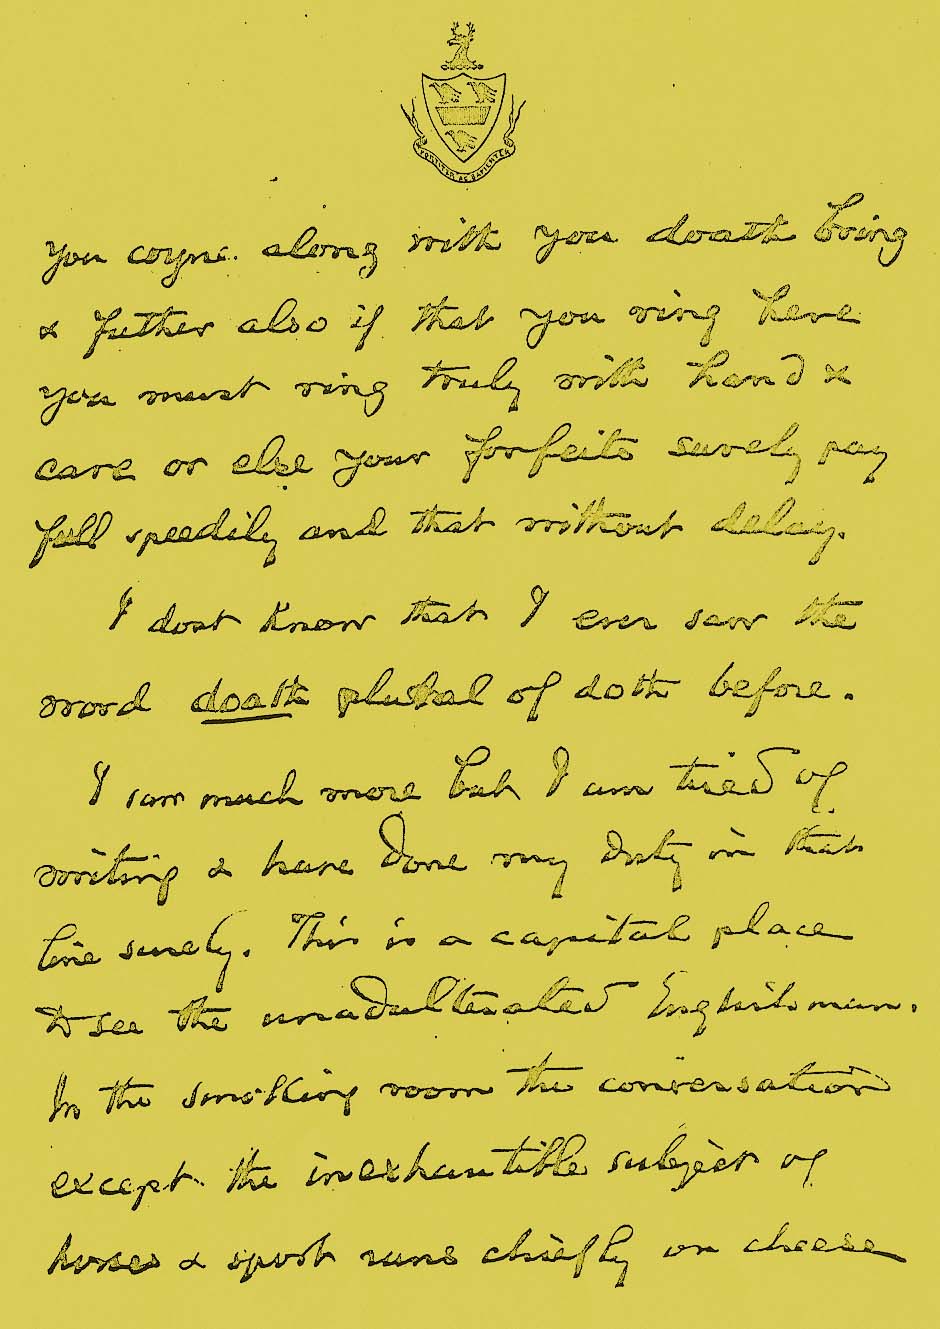 FORTITER AC SAPIENTER
you coyne along with you doath bring
& futher also if that you ring here
you must ring truly with hand &
care or else your forfeits surely pay
full speedily and that without delay.
I dont know that I ever saw the
word doath plural of doth before.
I saw much more but I am tired of
writing & have done my duty in that
line surely. This is a capital place
to see the unadulterated Englishman.
In the smoking room the conversation
except the inexhaustible subject of
horses & sport runs chiefly on cheese